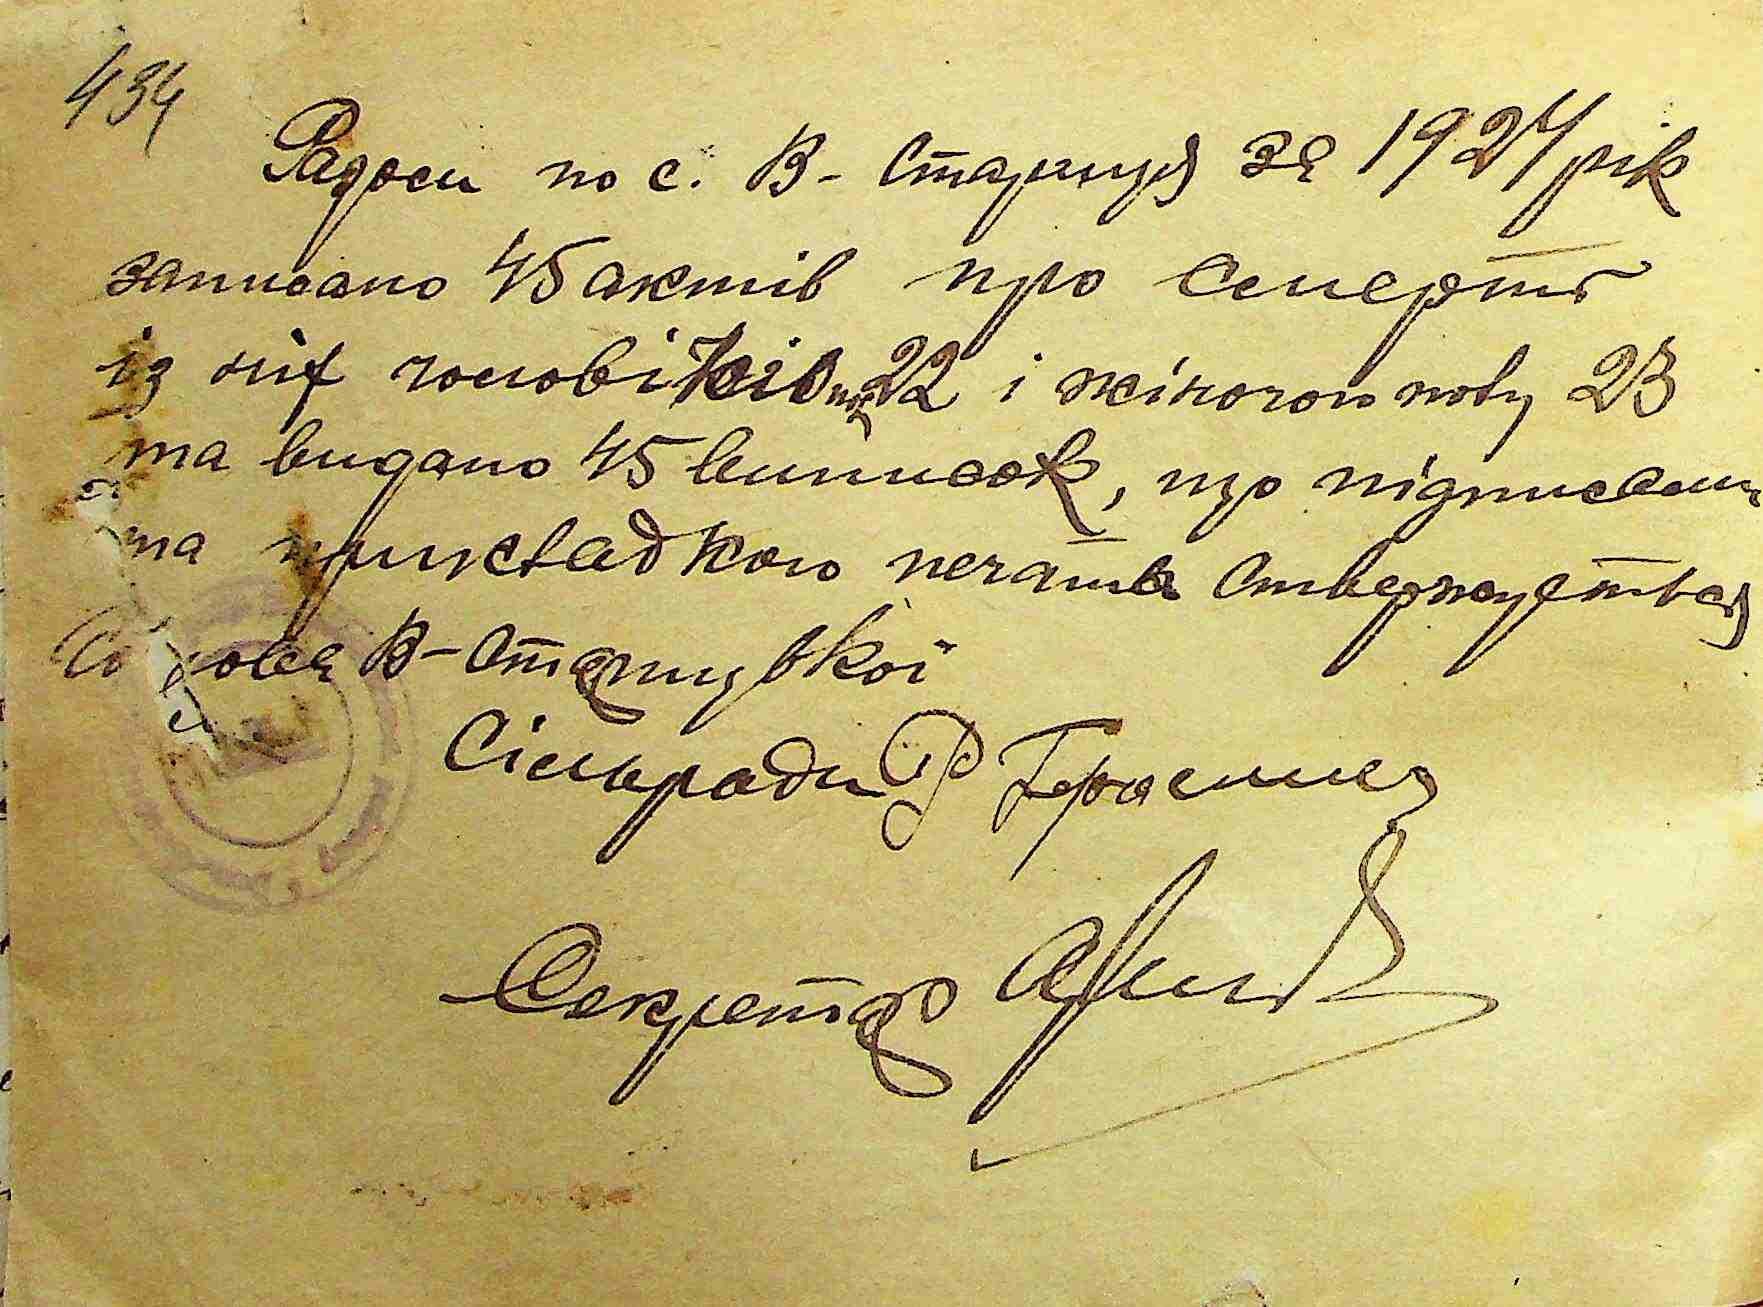 434
Радоси по с. В- Стариця за 1924 рік
записано 45 актів про смерть
із них чоловіків 22 і жіночого полу 23
та видано 45 виписок, що підписами
та прикладкою печатки ствержується
Голова В- Старицької
Сільради Герасимец
Секретар